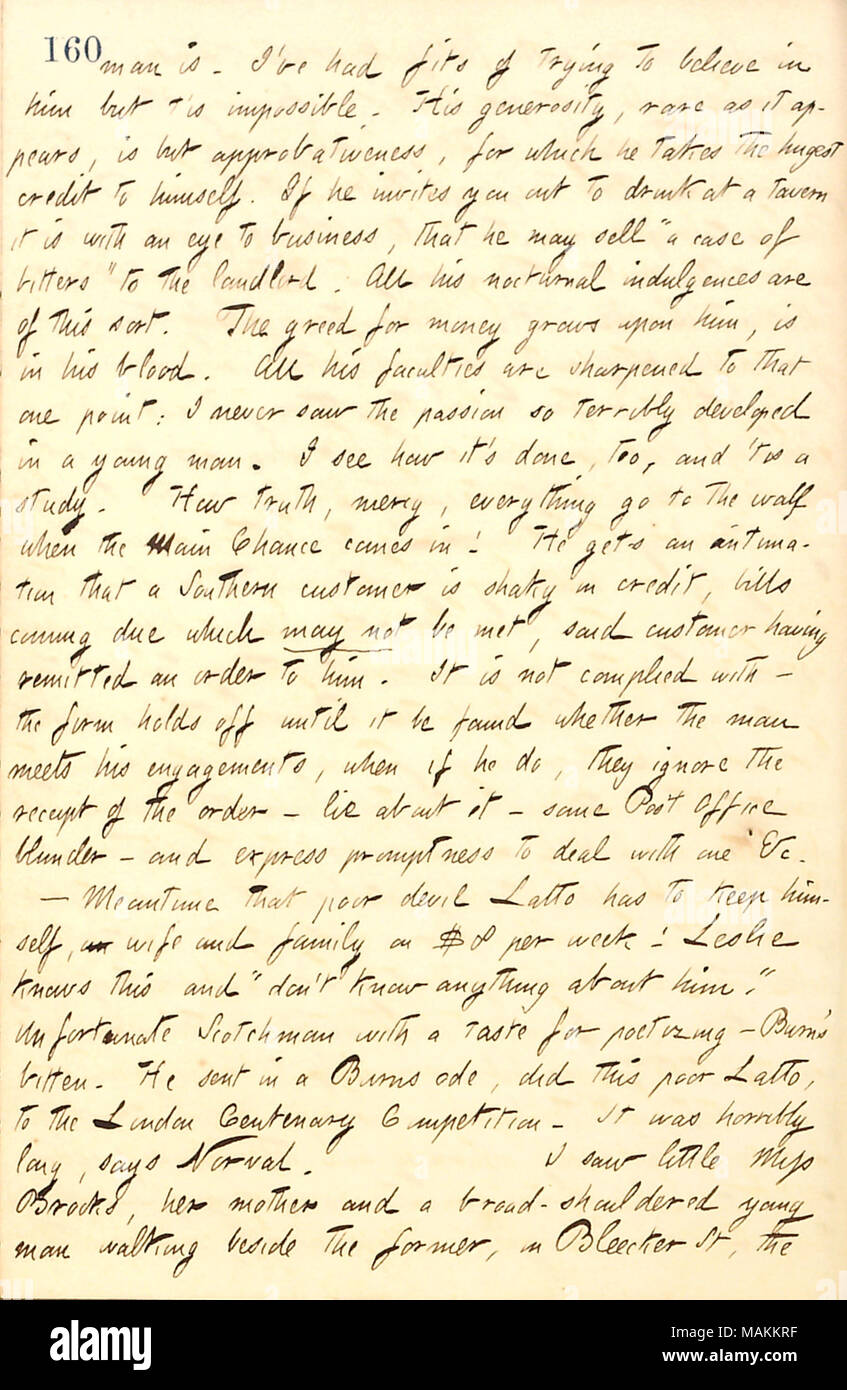 160
man is. I've had fits of trying to believe in
him but t'is impossible. His generosity, rare as it ap-
pears, is but approbativeness, for which he takes the hugest
credit to himself. If he invites you out to drink at a tavern
it is with an eye to business, that he may sell "a case of
bitters" to the landlord. All his nocturnal indulgences are
of this sort. The greed for money grows upon him, is
in his blood. All his faculties are sharpened to that
one point: I never saw the passion so terribly developed
in a young man. I see how it's done, too, and 'tis a
study. How truth, mercy, everything go to the wall
when the Main Chance comes in! He gets an intima-
tion that a Southern customer is shaky in credit, bills
coming due which may not be met, said customer having
remitted an order to him. It is not complied with —
the firm holds off until it be found whether the man
meets his engagements, when if he do, they ignore the
receipt of the order — lie about it — some Post Office
blunder — and express promptness to deal with one &c.
— Meantime that poor devil Latto has to keep him-
self, wife and family on $8 per week! Leslie
knows this and "don't know anything about him."
Unfortunate Scotchman with a taste for poetizing — Burns
bitten. He sent in a Burns ode, did this poor Latto,
to the London Centenary Competition. It was horribly
long, says Norval. I saw little Miss
Brooks, her mother and a broad-shouldered young
man walking beside the former, in Bleecker St, the
alamy
Image ID: MAKKRF
www.alamy.com